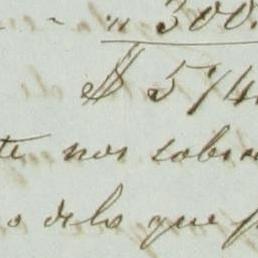 " 300.
$ 574
te nos sobra
o delo que